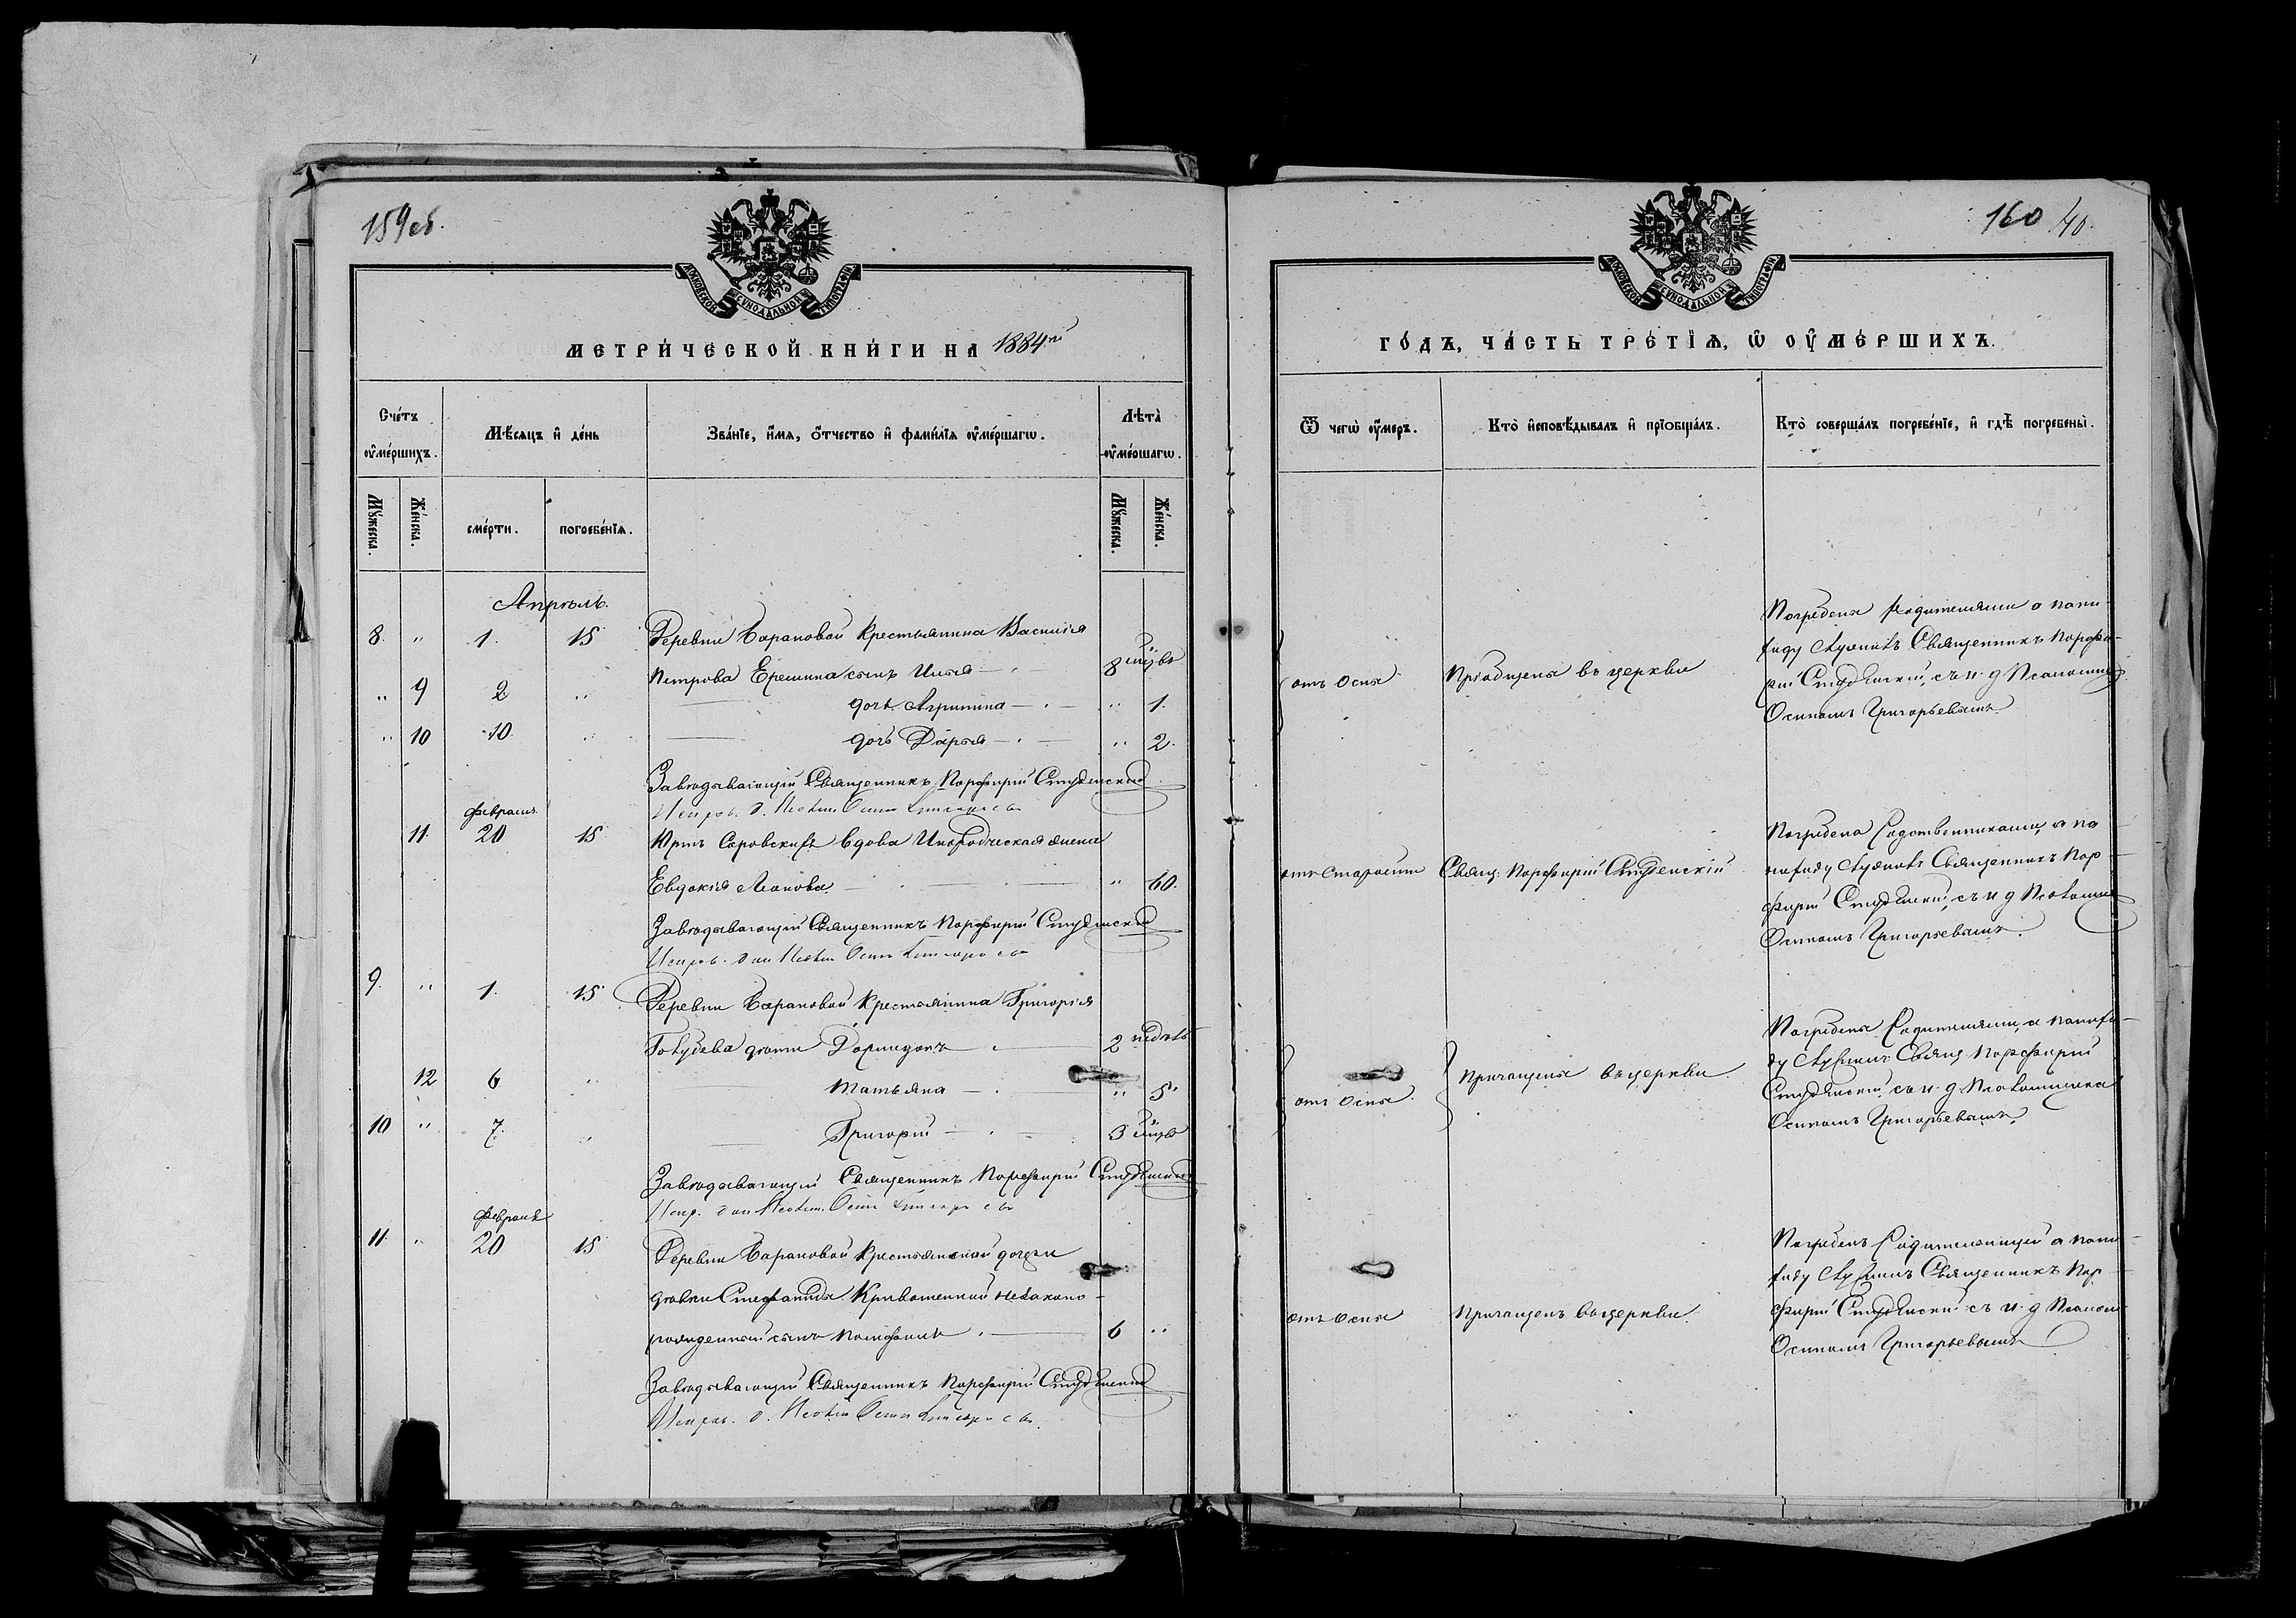 159 об.
МОСКОВСКОЙ СУНОДАЛЬНОЙ ТИПОГРАФІИ
МЕТРИ́ЧЕСКОЙ КНИ́ГИ НА 1884й
Сче́тъ ᲂу҆ме́ршихъ.
Мѣ́сяцъ и҆ де́нь
Зва́нїе, и҆́мя, ѻ҆́тчество и҆ фами́лїя ᲂу҆ме́ршагѡ.
Лѣта̀ ᲂу҆ме́ршагѡ.
Мꙋ́жеска. Же́нска. сме́рти. погребе́нїѧ. Мꙋ́жеска. Же́нска.
Апрѣль.
8. " 1. 15 Деревни Барановой крестьянина Василія
Петрова Еремина сынъ Илья 8 мѣцъ "
" 9 2 " дочь Агрипина " 1.
" 10 10 " дочь Дарья " 2.
Завѣдывающій Священникъ Порфирій Студенскій
Февраля
11. 20 15 Юртъ Саровскихъ вдова Инородческая жена
Евдокія " 60.
Завѣдывающій Священникъ Порфирій Студенскій
9. " 1. 15 Деревни Барановой крестьянина Григорія
дѣти Дормидонъ 2 недѣль
12 6 " Татьяна " 5
10 " 7. " Григорій 3 мѣцъ
Завѣдывающій Священникъ Порфирій Студенскій
Февраля
11. " 20 15 Деревни Барановой крестьянской дочери
дѣвки Стефаниды незаконо-
рожденный сынъ 6 "
Завѣдывающій Священникъ Порфирій Студенскій
160 40.
МОСКОВСКОЙ СУНОДАЛЬНОЙ ТИПОГРАФІИ
ГО́ДЪ, ЧА́СТЬ ТРЕ́ТЇѦ, Ѡ҆ ОУ҆МЕ́РШИХЪ.
Ѿ чегѡ̀ ᲂу҆́меръ.
Кто̀ и҆сповѣ́дывалъ и҆ прїѻбща́лъ.
Кто̀ соверша́лъ погребе́нїе, и҆ гдѣ̀ погребены̀.
отъ оспы
Пріобщены въ церкви
Погребены родителями а пани-
хиду служилъ Священникъ Порфи-
рій Студенскій, съ и. д. Псаломщ.
Осипомъ Григорьевымъ
отъ старости
Свящ. Порфирій Студенскій
Погребена родственниками, а па
нихиду служилъ Священникъ Пор-
фирій Студенскій, съ и д Псаломщ
Осипомъ Григорьевымъ.
отъ оспы.
Причащены въ церкви.
Погребены родителями, а панихи-
ду служилъ Свящ Порфирій
Студенскій, съ и. д Псаломщика
Осипомъ Григорьевымъ.
отъ оспы
Причащенъ въ церкви.
Погребенъ родительницей а пани-
хиду служилъ Священникъ Пор-
фирій Студенскій съ и. д Псалом.
Осипомъ Григорьевымъ